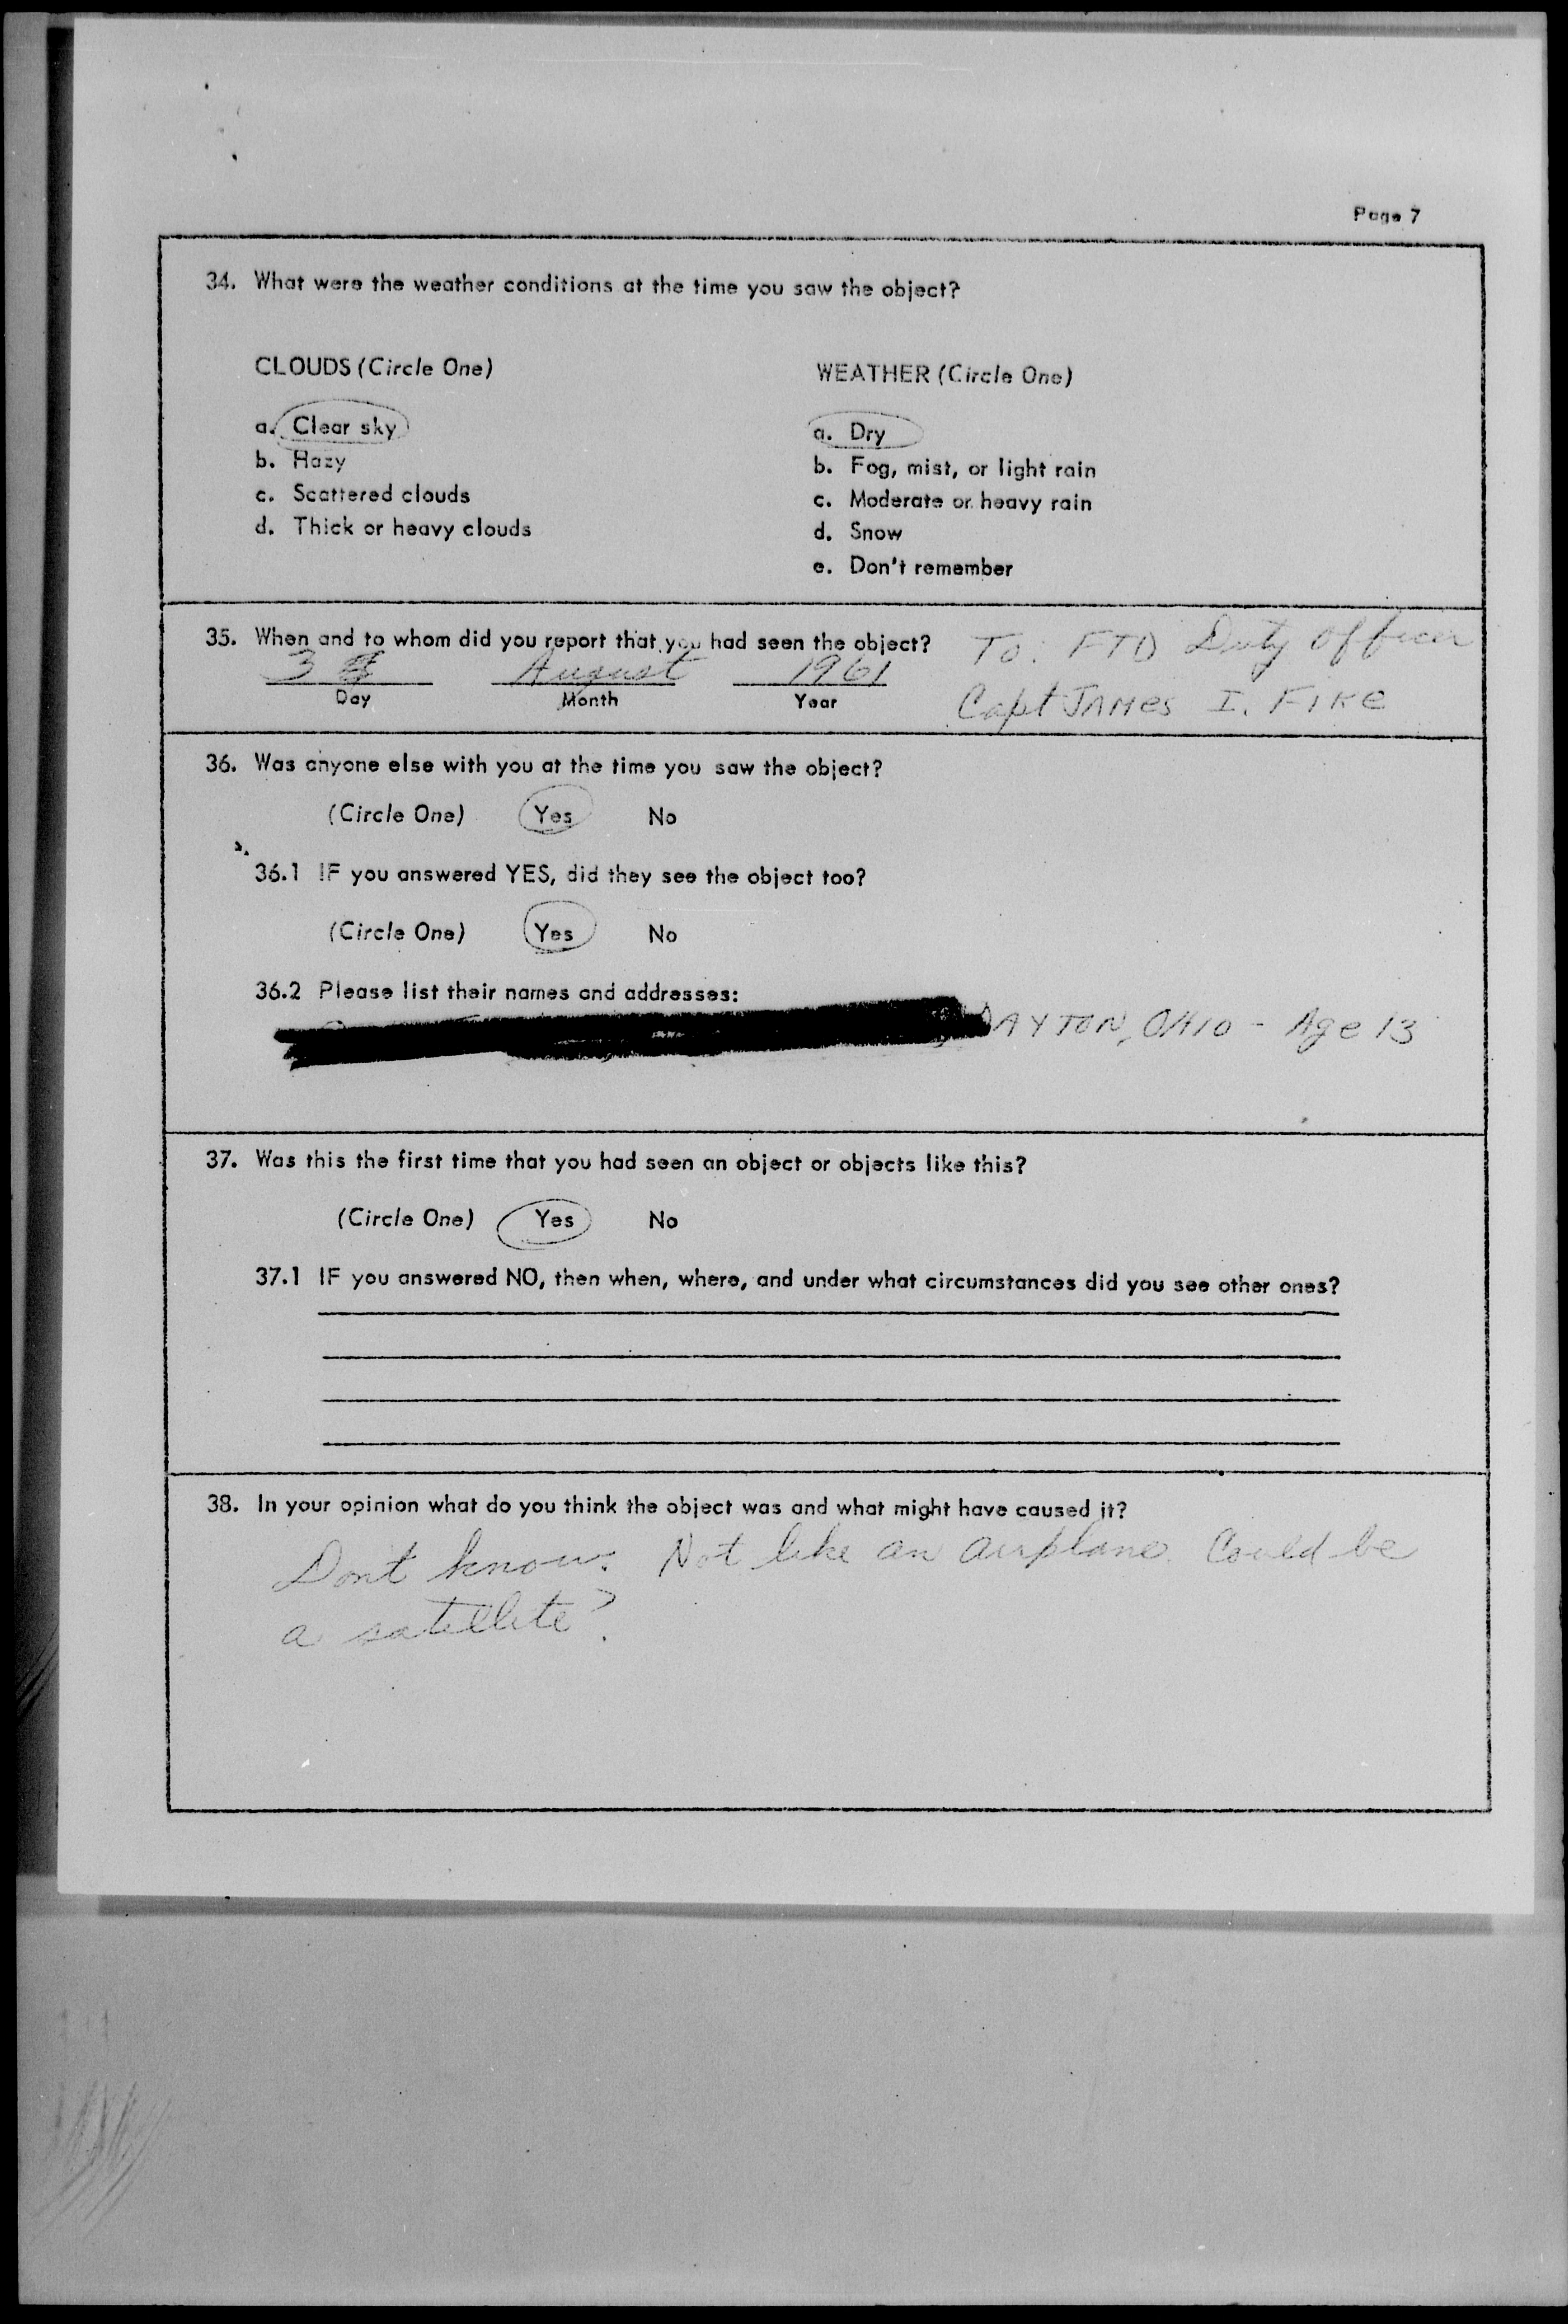 Page 7
34. What were the weather conditions at the time you saw the object?
CLOUDS (Circle One)
a. Clear sky
b. Hazy
c. Scattered clouds
d. Thick or heavy clouds
WEATHER (Circle One)
a. Dry
b. Fog, mist, or light rain
c. Moderate or heavy rain
d. Snow
e. Don't remember
35. When and to whom did you report that you had seen the object?
3 August 1961
Day Month Year
To: FTD Duty Officer
Capt JAMES I. FIKE
36. Was anyone else with you at the time you saw the object?
(Circle One) Yes No
36.1 IF you answered YES, did they see the object too?
(Circle One) Yes No
36.2 Please list their names and addresses:
DAYTON, OHIO - Age 13
37. Was this the first time that you had seen an object or objects like this?
(Circle One) Yes No
37.1 IF you answered NO, then when, where, and under what circumstances did you see other ones?
38. In your opinion what do you think the object was and what might have caused it?
Dont know. Not like an airplane. Could be
a satellite?